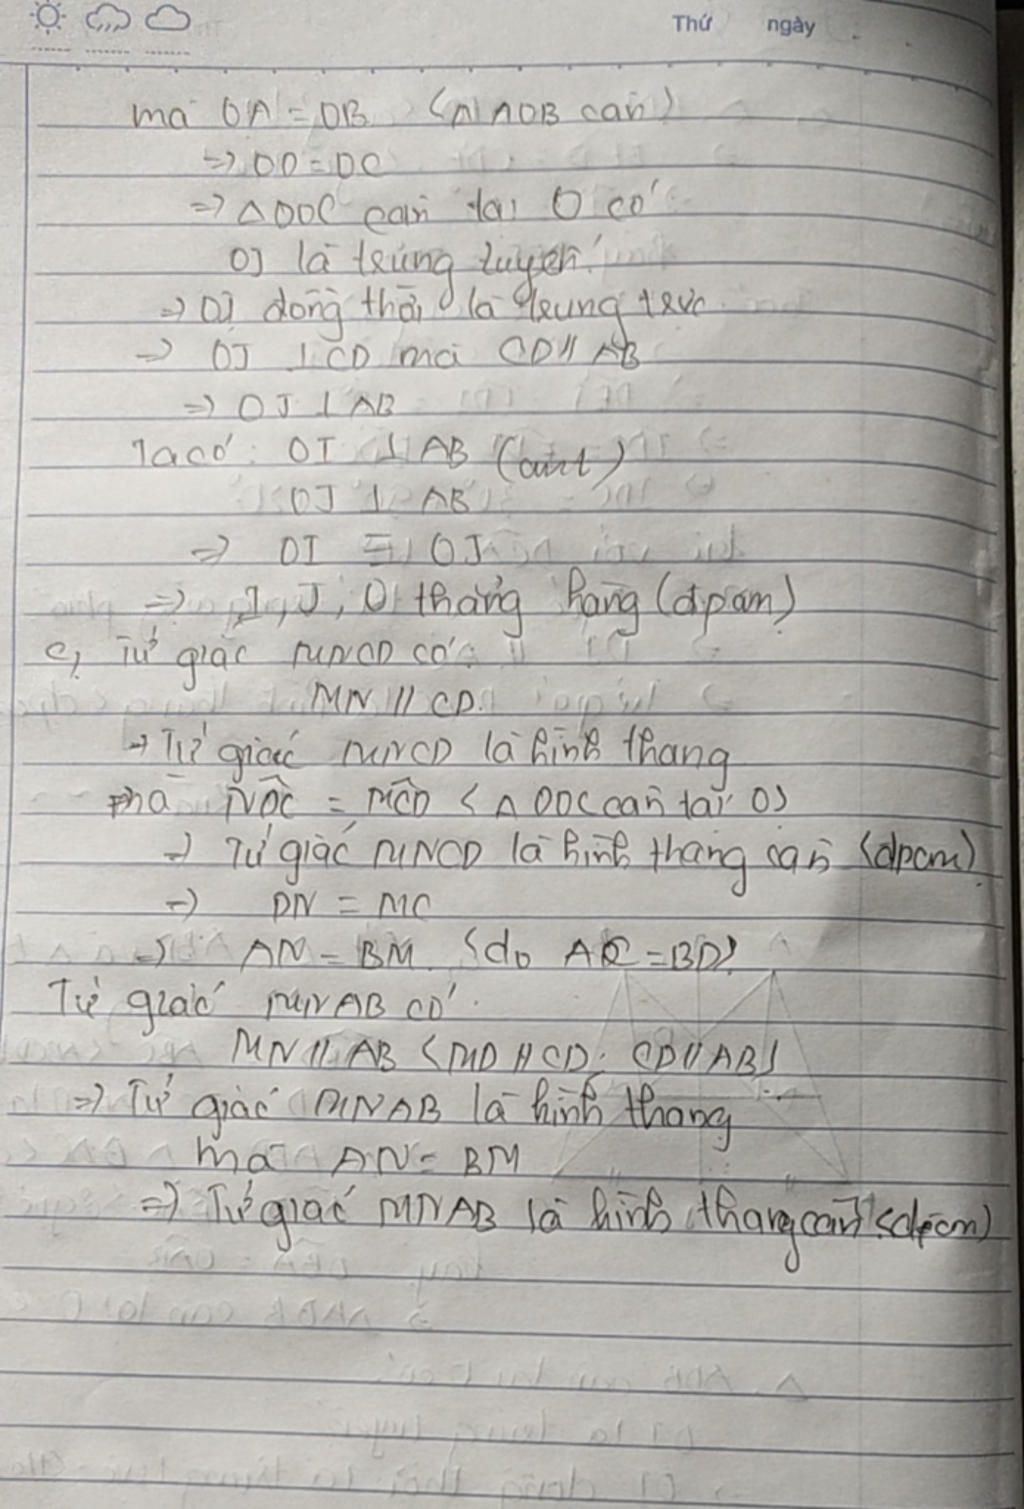 Thứ ngày
mà OA = OB (△AOB cân)
=> OD = OC
=> △ODC cân tại O có
OJ là trung tuyến
=> OJ đồng thời là trung trực
=> OJ ⊥ CD mà CD // AB
=> OJ ⊥ AB
Ta có: OI ⊥ AB (cmt)
OJ ⊥ AB
=> OI ≡ OJ
=> I, J, O thẳng hàng (đpcm)
c, Tứ giác MNCD có:
MN // CD
=> Tứ giác MNCD là hình thang
mà NDC = MCD (△ODC cân tại O)
=> Tứ giác MNCD là hình thang cân (đpcm)
=> DN = MC
=> AN = BM (do AC = BD)
Tứ giác MNAB có
MN // AB (MD // CD; CD // AB)
=> Tứ giác MNAB là hình thang
mà AN = BM
=> Tứ giác MNAB là hình thang cân (đpcm)